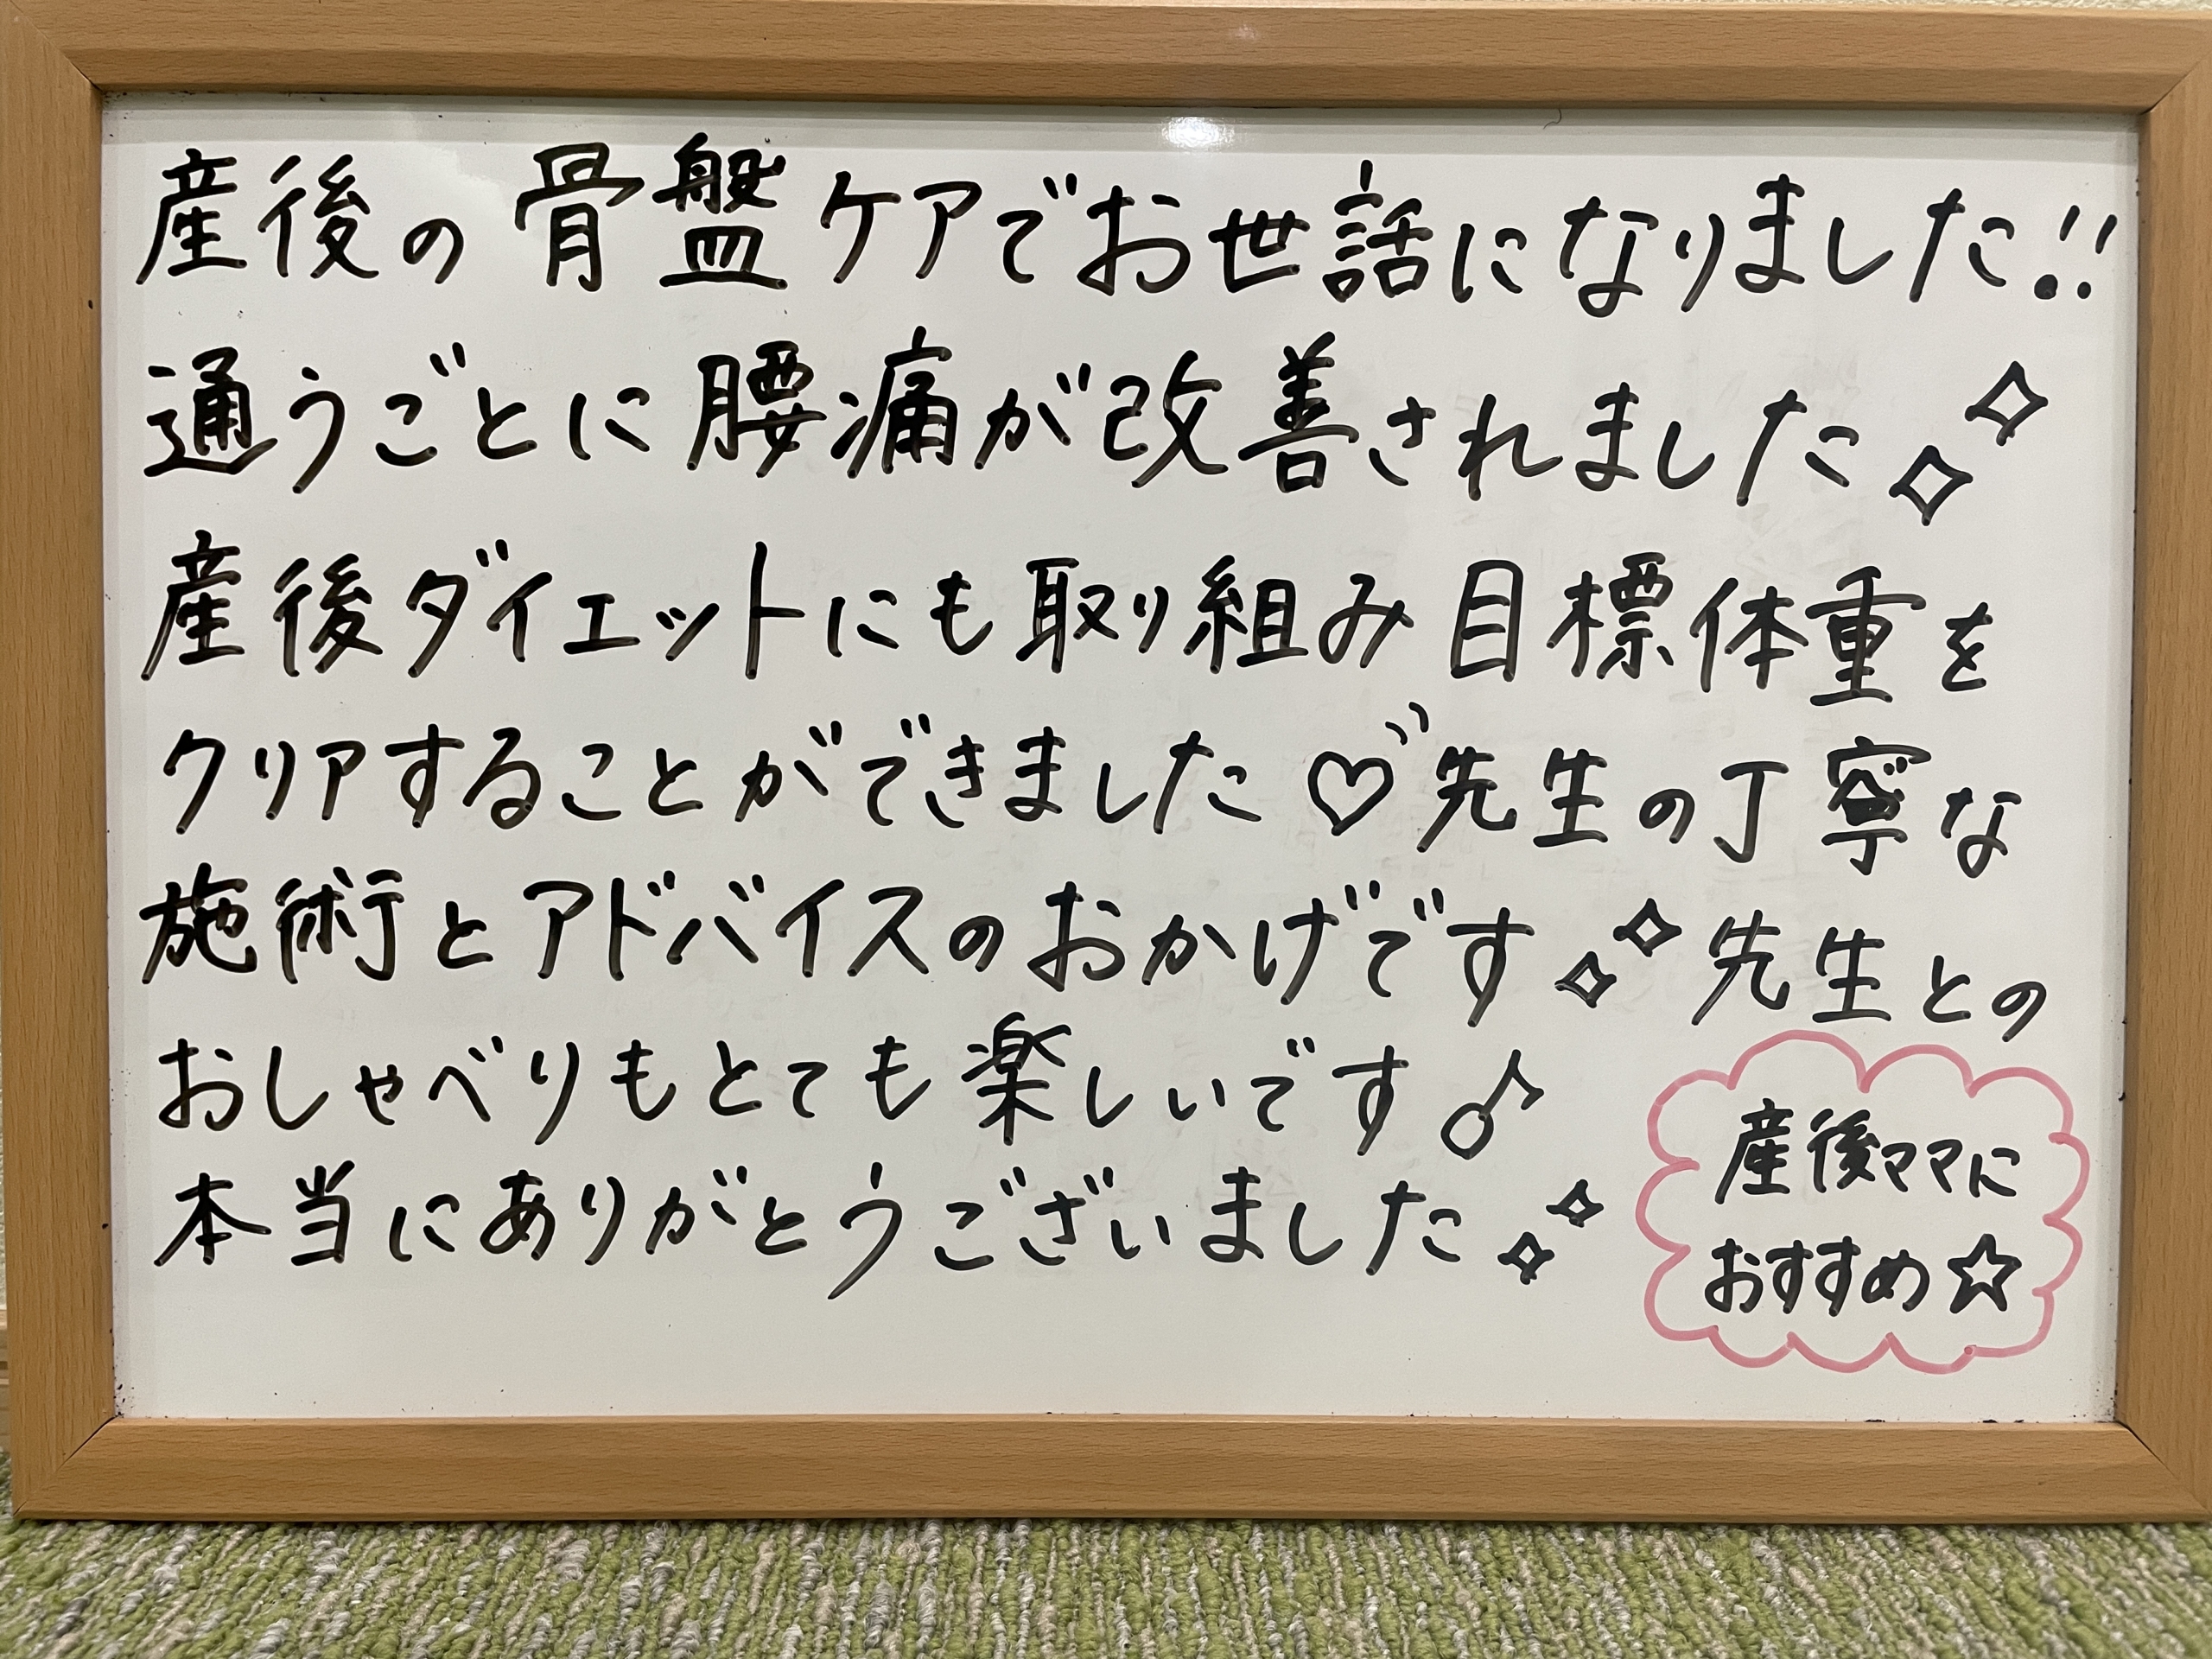 産後の骨盤ケアでお世話になりました!!
通うごとに腰痛が改善されました✧✧
産後ダイエットにも取り組み目標体重を
クリアすることができました♡先生の丁寧な
施術とアドバイスのおかげです✧✧先生との
おしゃべりもとても楽しいです♪
本当にありがとうございました✧✧
産後ママに
おすすめ☆